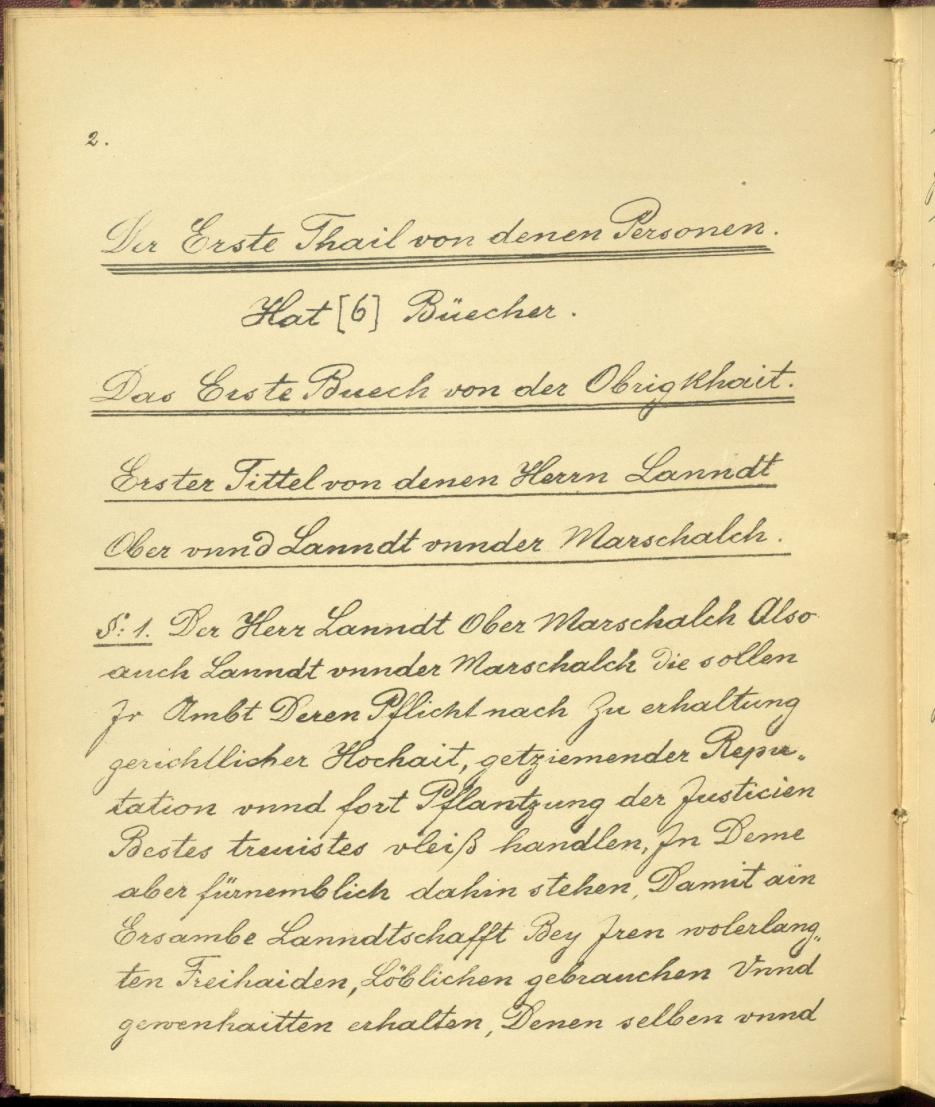 2.
Der Erste Thail von denen Personen.
Hat [6] Büecher.
Das Erste Buech von der Obrigkhait.
Erster Tittel von denen Herrn Lanndt
Ober vnnd Lanndt vnnder Marschalch.
§: 1. Der Herr Lanndt Ober Marschalch Also
auch Lanndt vnnder Marschalch die sollen
Jr Ambt Deren Pflicht nach Zu erhaltung
gerichtlicher Hochait, getziemender Repu„
tation vnnd fort Pflantzung der Justicien
Bestes treuistes vleiß handlen, Jn Deme
aber fürnemblich dahin stehen, Damit ain
Ersambe Lanndtschafft Bey Jren wolerlang„
ten Freihaiden, Löblichen gebrauchen Vnnd
gewenhaitten erhalten, Denen selben vnnd